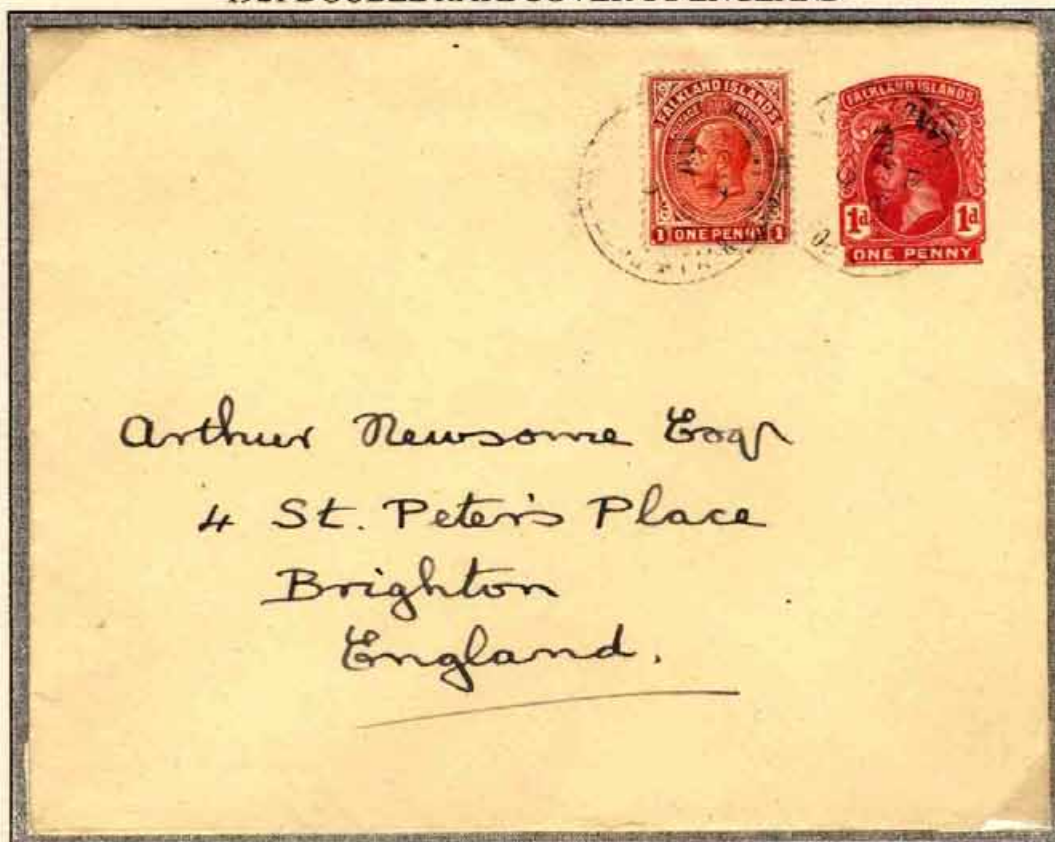 FALKLAND ISLANDS
POSTAGE
1 ONE PENNY 1
FALKLAND ISLANDS
1d. 1d.
ONE PENNY
Arthur Newsome Esqr
4 St. Peter's Place
Brighton
England.